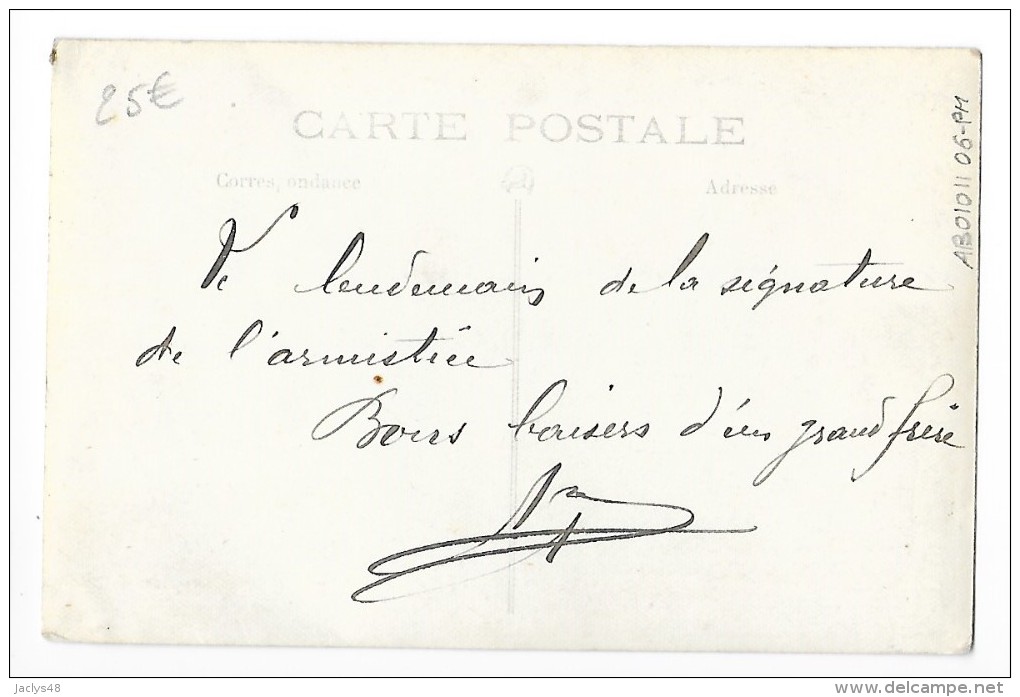 25€
CARTE POSTALE
Correspondance
Adresse
AB01011 06-PM
Le lendemain de la signature
de l'armistice
Bons baisers d'un grand frère
jaclys48
www.delcampe.net